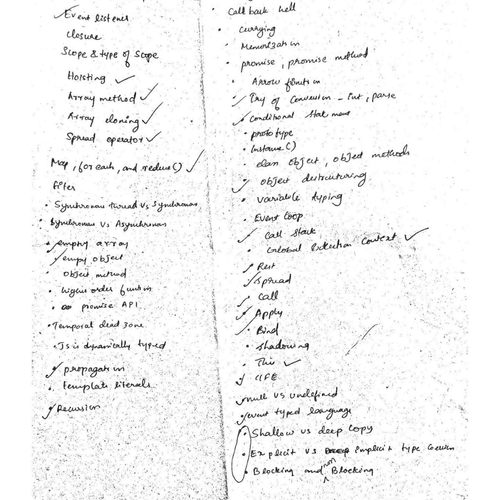 Event listener
Closure
Scope & type of Scope
Hoisting
Array method
Array cloning
Spread operator
Map, foreach, and reduce()
filter
Synchronous thread vs Synchronous
Synchronous vs Asynchronous
empty array
empty object
Object method
higher order function
promise API
Temporal dead zone
Js is dynamically typed
propagation
template literals
Recursion
Call back hell
Currying
Memorization
promise, promise method
Arrow function
Conversion - Int, parse
Conditional Statement
prototype
Instance()
object, object methods
object destructuring
variable typing
Event loop
Call Stack
Global Execution Context
Rest
Spread
Call
Apply
Bind
Shadowing
This
IIFE
null vs undefined
typed language
Shallow vs deep Copy
Explicit vs Implicit type
Blocking and non Blocking